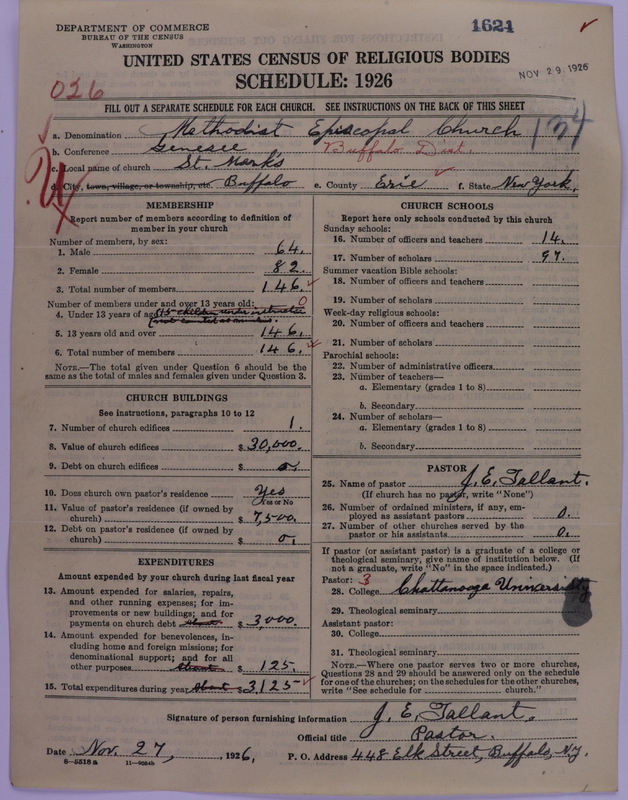 DEPARTMENT OF COMMERCE
BUREAU OF THE CENSUS
WASHINGTON
1624
UNITED STATES CENSUS OF RELIGIOUS BODIES
SCHEDULE: 1926
NOV 29 1926
026
FILL OUT A SEPARATE SCHEDULE FOR EACH CHURCH. SEE INSTRUCTIONS ON THE BACK OF THIS SHEET
a. Denomination Methodist Episcopal Church 134
b. Conference Genesee Buffalo Dist.
c. Local name of church St. Mark's
d. City, town, village, or township, etc. Buffalo e. County Erie f. State New York.
MEMBERSHIP
Report number of members according to definition of
member in your church
Number of members, by sex:
1. Male 64.
2. Female 82.
3. Total number of members 146.
Number of members under and over 13 years old:
4. Under 13 years of age 0
5. 13 years old and over 146.
6. Total number of members 146.
NOTE.—The total given under Question 6 should be
same as the total of males and females given under Question 3.
CHURCH BUILDINGS
See instructions, paragraphs 10 to 12
7. Number of church edifices 1.
8. Value of church edifices $ 30,000.
9. Debt on church edifices $ 0.
10. Does church own pastor's residence Yes
Yes or No
11. Value of pastor's residence (if owned by
church) $ 7,500.
12. Debt on pastor's residence (if owned by
church) $ 0.
EXPENDITURES
Amount expended by your church during last fiscal year
13. Amount expended for salaries, repairs,
and other running expenses; for im-
provements or new buildings; and for
payments on church debt About $ 3,000.
14. Amount expended for benevolences, in-
cluding home and foreign missions; for
denominational support; and for all
other purposes About $ 125.
15. Total expenditures during year About $ 3,125
CHURCH SCHOOLS
Report here only schools conducted by this church
Sunday schools:
16. Number of officers and teachers 14.
17. Number of scholars 97.
Summer vacation Bible schools:
18. Number of officers and teachers
19. Number of scholars
Week-day religious schools:
20. Number of officers and teachers
21. Number of scholars
Parochial schools:
22. Number of administrative officers
23. Number of teachers—
a. Elementary (grades 1 to 8)
b. Secondary
24. Number of scholars—
a. Elementary (grades 1 to 8)
b. Secondary
PASTOR
25. Name of pastor J. E. Tallant.
(If church has no pastor, write "None")
26. Number of ordained ministers, if any, em-
ployed as assistant pastors 0.
27. Number of other churches served by the
pastor or his assistants 0.
If pastor (or assistant pastor) is a graduate of a college or
theological seminary, give name of institution below. (If
not a graduate, write "No" in the space indicated.)
Pastor: 3
28. College Chattanooga University
29. Theological seminary
Assistant pastor:
30. College
31. Theological seminary
NOTE.—Where one pastor serves two or more churches,
Questions 28 and 29 should be answered only on the schedule
for one of the churches; on the schedules for the other churches,
write "See schedule for church."
Signature of person furnishing information J. E. Tallant.
Official title Pastor.
Date Nov. 27, 1926, P. O. Address 448 Elk Street, Buffalo, N.Y.